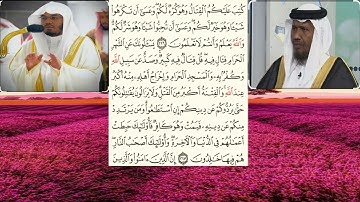 كُتِبَ عَلَيْكُمُ ٱلْقِتَالُ وَهُوَ كُرْهٌ لَّكُمْ وَعَسَىٰٓ أَن تَكْرَهُوا۟
شَيْـًٔا وَهُوَ خَيْرٌ لَّكُمْ وَعَسَىٰٓ أَن تُحِبُّوا۟ شَيْـًٔا وَهُوَ شَرٌّ لَّكُمْ
وَٱللَّهُ يَعْلَمُ وَأَنتُمْ لَا تَعْلَمُونَ ٢١٦ يَسْـَٔلُونَكَ عَنِ ٱلشَّهْرِ
ٱلْحَرَامِ قِتَالٍ فِيهِ قُلْ قِتَالٌ فِيهِ كَبِيرٌ وَصَدٌّ عَن سَبِيلِ ٱللَّهِ
وَكُفْرٌۢ بِهِۦ وَٱلْمَسْجِدِ ٱلْحَرَامِ وَإِخْرَاجُ أَهْلِهِۦ مِنْهُ أَكْبَرُ
عِندَ ٱللَّهِ وَٱلْفِتْنَةُ أَكْبَرُ مِنَ ٱلْقَتْلِ وَلَا يَزَالُونَ يُقَـٰتِلُونَكُمْ
حَتَّىٰ يَرُدُّوكُمْ عَن دِينِكُمْ إِنِ ٱسْتَطَـٰعُوا۟ وَمَن يَرْتَدِدْ
مِنكُمْ عَن دِينِهِۦ فَيَمُتْ وَهُوَ كَافِرٌ فَأُو۟لَـٰٓئِكَ حَبِطَتْ
أَعْمَـٰلُهُمْ فِى ٱلدُّنْيَا وَٱلْـَٔاخِرَةِ وَأُو۟لَـٰٓئِكَ أَصْحَـٰبُ ٱلنَّارِ
هُمْ فِيهَا خَـٰلِدُونَ ٢١٧ إِنَّ ٱلَّذِينَ ءَامَنُوا۟ وَٱلَّذِينَ